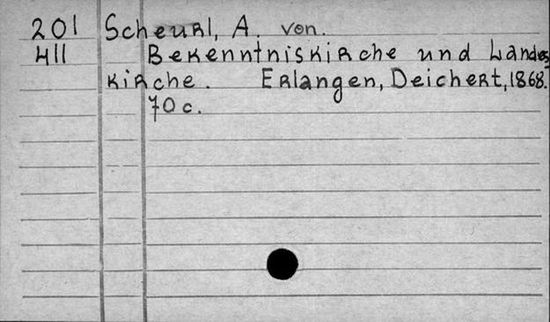 201 Scheurl, A. von.
411 Bekenntniskirche und Landes
kirche. Erlangen, Deichert, 1868.
70 c.